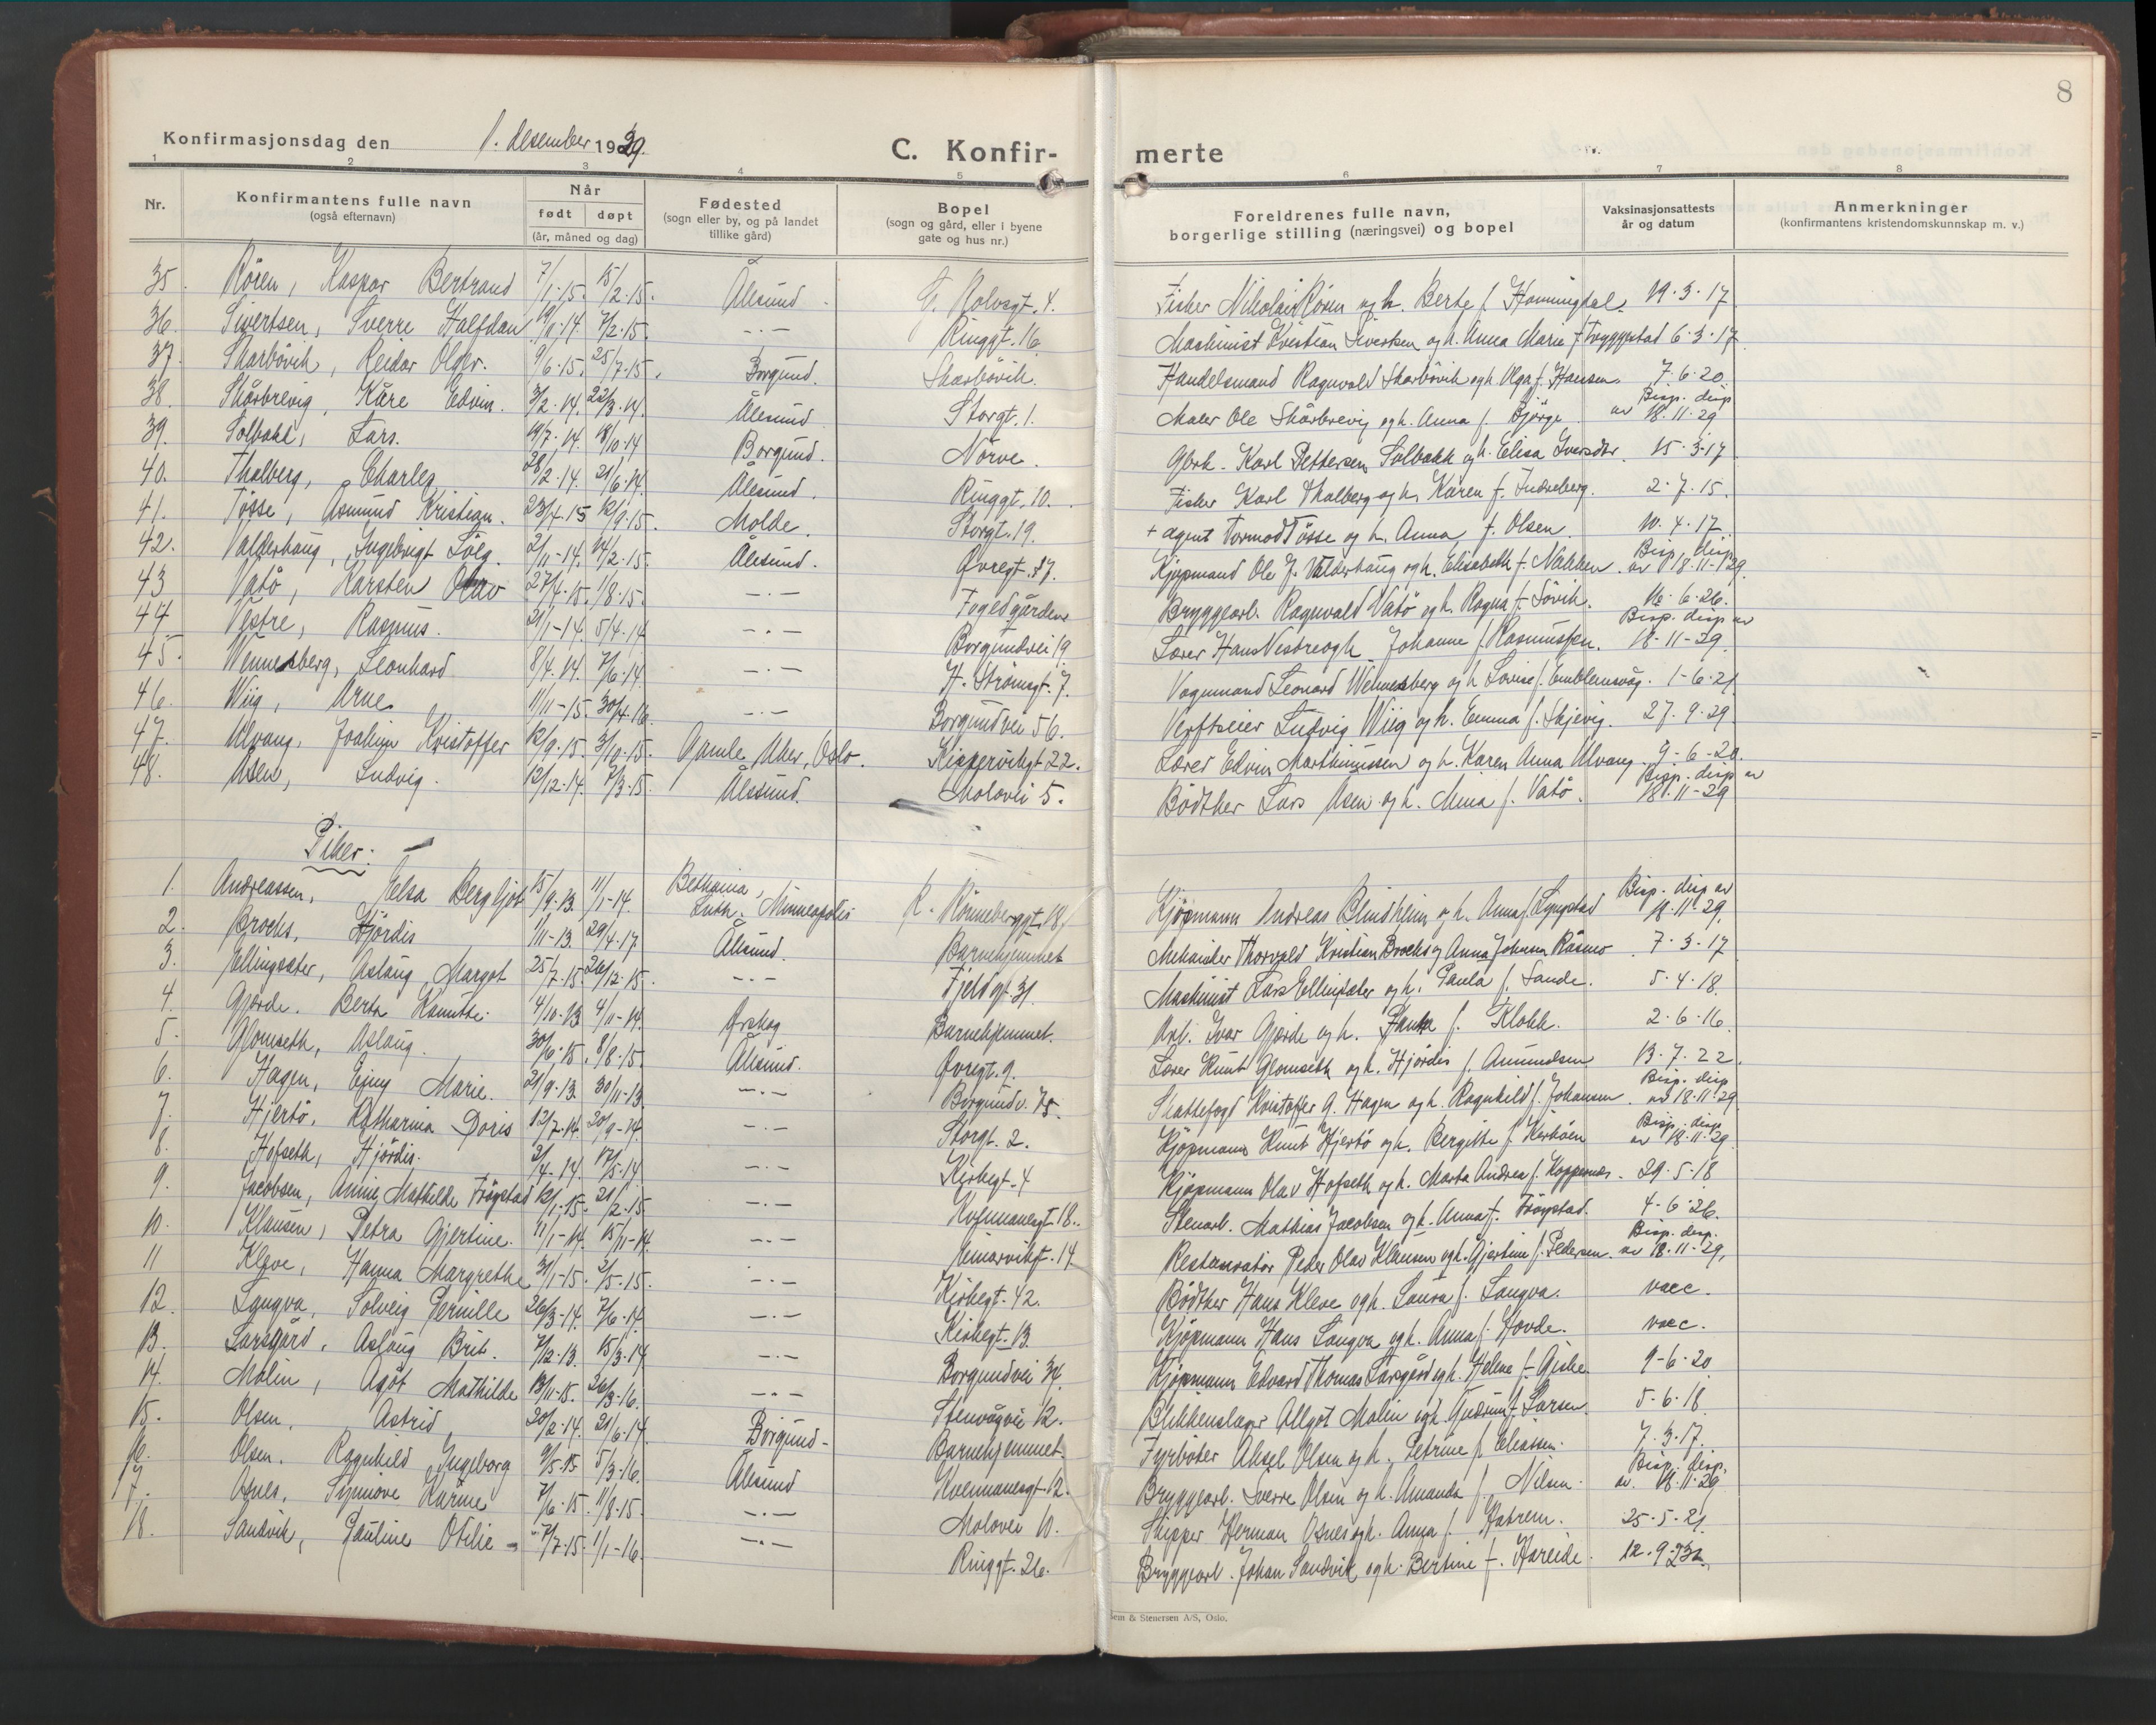 8
Konfirmasjonsdag den 1. desember 1929.
C. Konfir-
merte
1 2 3 4 5 6 7 8
Nr.
Konfirmantens fulle navn
(også efternavn)
Når
født døpt
(år, måned og dag)
Fødested
(sogn eller by, og på landet
tillike gård)
Bopel
(sogn og gård, eller i byene
gate og hus nr.)
Foreldrenes fulle navn,
borgerlige stilling (næringsvei) og bopel
Vaksinasjonsattests
år og datum
Anmerkninger
(konfirmantens kristendomskunnskap m. v.)
35. Rören, Kaspar Bertrand 7/1-15. 15/2-15. Ålesund G. Rolvsgt. 4. Fisker Nikolai Rören og h. Berte f. Honningdal. 19-3-17
36. Sivertsen, Sverre Halfdan 19/11-14 7/2-15. -.- Ringgt. 16 Maskinist Kristian Sivertsen og h. Anna Marie f. Tryggestad 6-3-17
37. Skarbövik, Reidar Olger. 9/6-15. 25/7-15. Borgund. Skarbövik. Handelsmand Ragnvald Skarbövik og h. Olga f. Hansen. 7-6-20
38. Skårbrevig, Kåre Edvin. 3/2-14. 22/3-14. Ålesund Storgt. 1. Maler Ole Skårbrevig og h. Anna f. Bjørge Bisp. disp av 18-11-29
39. Solbakk, Lars. 19/7-14. 18/10-14 Borgund. Nörve. Gbrk. Karl Pettersen Solbakk og h. Elisa Iversdtr. 15-3-17
40. Thalberg, Charles 28/2-14. 21/6-14. Ålesund. Ringgt. 10. Fisker Karl Thalberg og h. Karen f. Indreberg. 2-7-15.
41. Tösse, Asmund Kristian. 23/7-15 12/9-15. Molde. Storgt. 19. + agent Tormod Tösse og h. Anna f. Olsen 10-4-17
42. Valderhaug, Ingebrigt Sölg. 2/11-14. 14/2-15. Ålesund. Øvregt. 37. Kjøpmand Ole J. Valderhaug og h. Elisabeth f. Nakken. Bisp. disp. av 18-11-29
43 Vatö, Karsten Olav 27/4-15. 1/8-15. -.- Fogedgården Bryggearb. Ragnvald Vatö og h. Ragna f. Sövik. 10-6-26.
44 Vestre, Rasmus. 21/1-14 5/4-14 -.- Borgundvei 19 Lærer Hans Vestre og h. Johanne f. Rasmussen. Bisp. disp av 18-11-29
45. Wennesberg, Leonhard 8/4-14. 7/6-14 -.- H. Strömsgt. 7. Vognmand Leonard Wennesberg og h. Lovise f. Emblemsvåg. 1-6-21
46. Wiig, Arne 11/11-15. 30/4-16 -.- Borgundvei 56. Verftseier Ludvig Wiig og h. Emma f. Skjevig. 27-9-29
47. Alvang, Joakim Kristoffer 12/9-15. 3/10-15. Gamle Aker, Oslo. Kippervikgt 22. Lærer Edvin Marthinussen og h. Karen Anna Alvang 9-6-20.
48. Åsen, Ludvig. 12/12-14. 7/3-15. Ålesund. Molovei 5. Bödtker Lars Åsen og h. Mina f. Vatö. Bisp. disp av 18-11-29
Piker:
1. Andreassen, Elsa Bergljot 15/9-13. 11/1-14. Bethania, Luth. Minneapolis K. Rönneberggt. 18. Kjøpmann Andreas Blindheim og h. Anna f. Lyngstad Bisp. disp av 18-11-29.
2. Brochs, Hjördis 1/11-13. 29/4-17 Ålesund. Barnehjemmet Mekaniker Thorvald Kristian Brochs og Anna Johanna Råsmo 7-3-17
3. Ellingsæter, Aslaug Margot 25/7-15. 26/12-15. -.- Fjeldgt. 31. Maskinist Lars Ellingsæter og h. Paula f. Sande. 5-4-18.
4. Gjørde. Berta Kamitte 4/10-13 4/11-14. Ørskog Barnehjemmet. Arb. Ivar Gjørde og h. f. Klokk. 2-6-16
5. Glomseth, Aslaug. 30/6-15. 8/8-15. Ålesund. Øvregt. 9. Lærer Knut Glomseth og h. Hjördis f. Amundsen 13-7-22.
6. Hagen, Ejny Marie. 21/9-13. 30/11-13. -.- Borgundv. 75. Skattefogd Kristoffer G. Hagen og h. Ragnhild f. Johansen. Bisp. disp av 18-11-29
7. Hjertö, Katharina Doris 12/7-14. 20/9-14. -.- Storgt. 2. Kjøpmann Knut Hjertö og h. Bergitte f. Korhöen Bisp. disp. av 18-11-29
8. Hofseth, Hjördis. 2/4-14. 17/5-14 -.- Kirkegt. 4 Kjøpmann Olav Hofseth og h. Marta Andrea f. Koppernæs. 29-5-18
9. Jacobsen, Anny Mathilde Frögstad 12/1-15. 21/2-15 -.- Kolmannsgt 18. Stenarb. Mathias Jacobsen og h. Anna f. Frögstad. 4-6-26.
10. Klausen, Petra Gjertine. 11/1-14. 15/11-14. -.- Aamarvikgt. 14 Restauratör Peder Olav Klausen og h. Gjertine f. Pedersen. Bisp. disp. av 18-11-29.
11 Kleve, Hanna Margrethe 31/1-15. 2/5-15. -.- Kirkegt. 42. Bödtker Hans Kleve og h. Laura f. Longva. vacc.
12. Longva, Solveig Pernille 26/3-14. 7/6-14. -.- Kirkegt. 13. Kjøpmann Hans Longva og h. Anna f. Hovde. vacc.
13. Larsgård, Aslaug Brit. 7/12-13. 15/3-14 -.- Borgundvei 34. Kjøpmann Edvard Thomas Larsgård og h. Helene f. Giske 9-6-20
14. Molin, Ågöt Mathilde 13/11-15. 26/3-16. -.- Stenvågvei 12. Blikkenslager Allgot Molin og h. Gudrun f. Larsen. 5-6-18
15. Olsen, Astrid 20/2-14. 21/6-14 Borgund- Barnehjemmet. Fyrböter Aksel Olsen og h. Petrine f. Eliassen. 7-3-17.
16. Olsen. Ragnhild Ingeborg 9/5-15 5/3-16. Ålesund Kolmannsgt. 12. Bryggearb. Sverre Olsen og h. Amanda f. Nilsen. Bisp. disp. av. 18-11-29
17. Osnes, Synnöve Karine 7/6-15. 11/8-15. -.- Molovei 10. Skipper Herman Osnes og h. Anna f. Hatrem. 25-5-21.
18. Sandvik, Pauline Otilie 7/7-15. 1/1-16. -.- Ringgt. 26. Bryggearb. Johan Sandvik og h. Bertine f. Hareide. 12-9-
Sem & Stenersen A/S, Oslo.